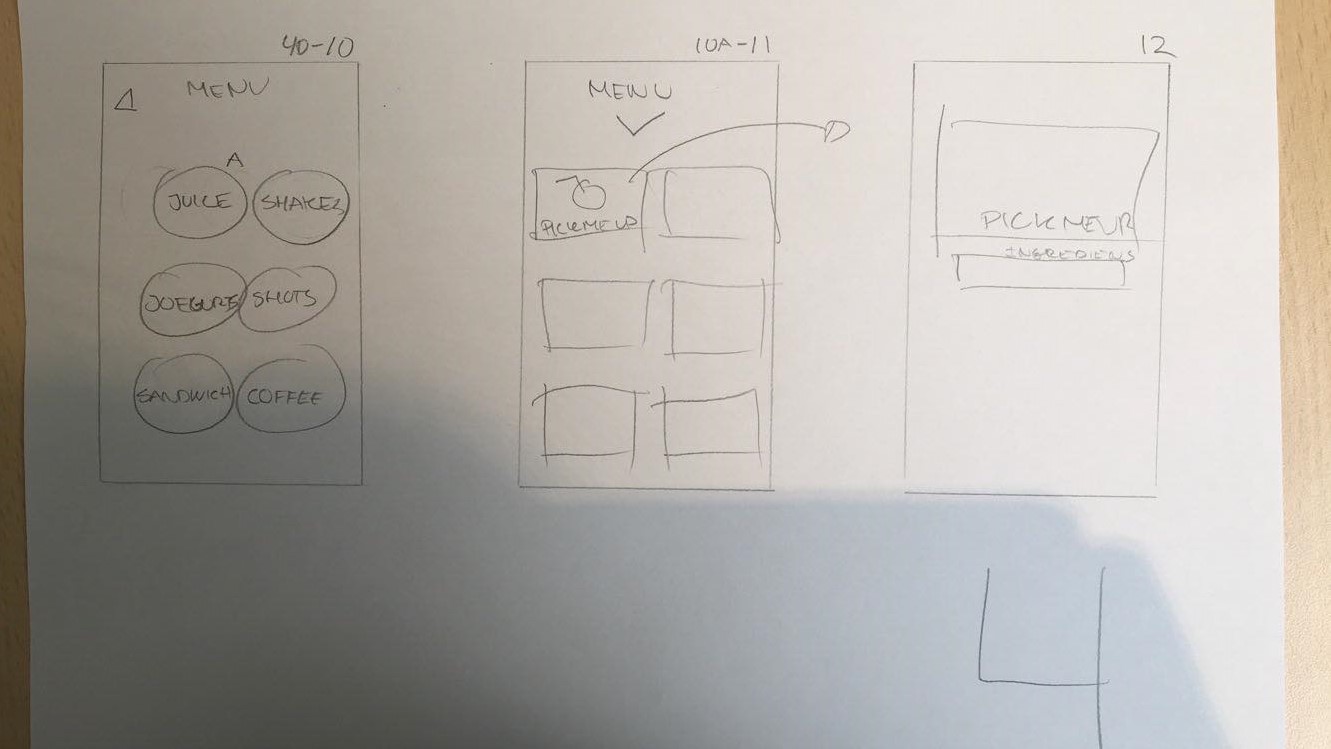 4D-10
MENU
A
JUICE SHAKES
JOEGURS SHOTS
SANDWICH COFFEE
10A-11
MENU
PICKMEUP
12
PICKMEUP
INGREDIENS
4